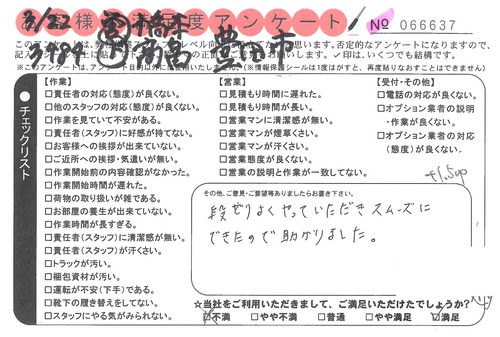 お客様満足度アンケート
№ 066637
3/22
豊田市
【作業】
□責任者の対応(態度)が良くない。
□他のスタッフの対応(態度)が良くない。
□作業を見ていて不安がある。
□責任者(スタッフ)に好感が持てない。
□お客様への挨拶が出来ていない。
□ご近所への挨拶・気遣いが無い。
□作業開始前の内容確認がなかった。
□作業開始時間が遅れた。
□荷物の取り扱いが雑である。
□お部屋の養生が出来ていない。
□作業時間が長すぎる。
□責任者(スタッフ)に清潔感が無い。
□責任者(スタッフ)が汗くさい。
□トラックが汚い。
□梱包資材が汚い。
□運転が不安(下手)である。
□靴下の履き替えをしてない。
□スタッフにやる気がみられない。
●チェックリスト
【営業】
□見積もり時間に遅れた。
□見積もり時間が長い。
□営業マンに清潔感が無い。
□営業マンが煙草くさい。
□営業マンが汗くさい。
□営業態度が良くない。
□営業の説明と作業が一致してない。
【受付・その他】
□電話の対応が良くない。
□オプション業者の説明
・作業が良くない。
□オプション業者の対応
(態度)が良くない。
その他、ご意見・ご要望等ありましたらお書き下さい。
段どりよくやっていただきスムーズに
できたので助かりました。
☆当社をご利用いただきまして、ご満足いただけたでしょうか?
□不満 □やや不満 □普通 □やや満足 □満足